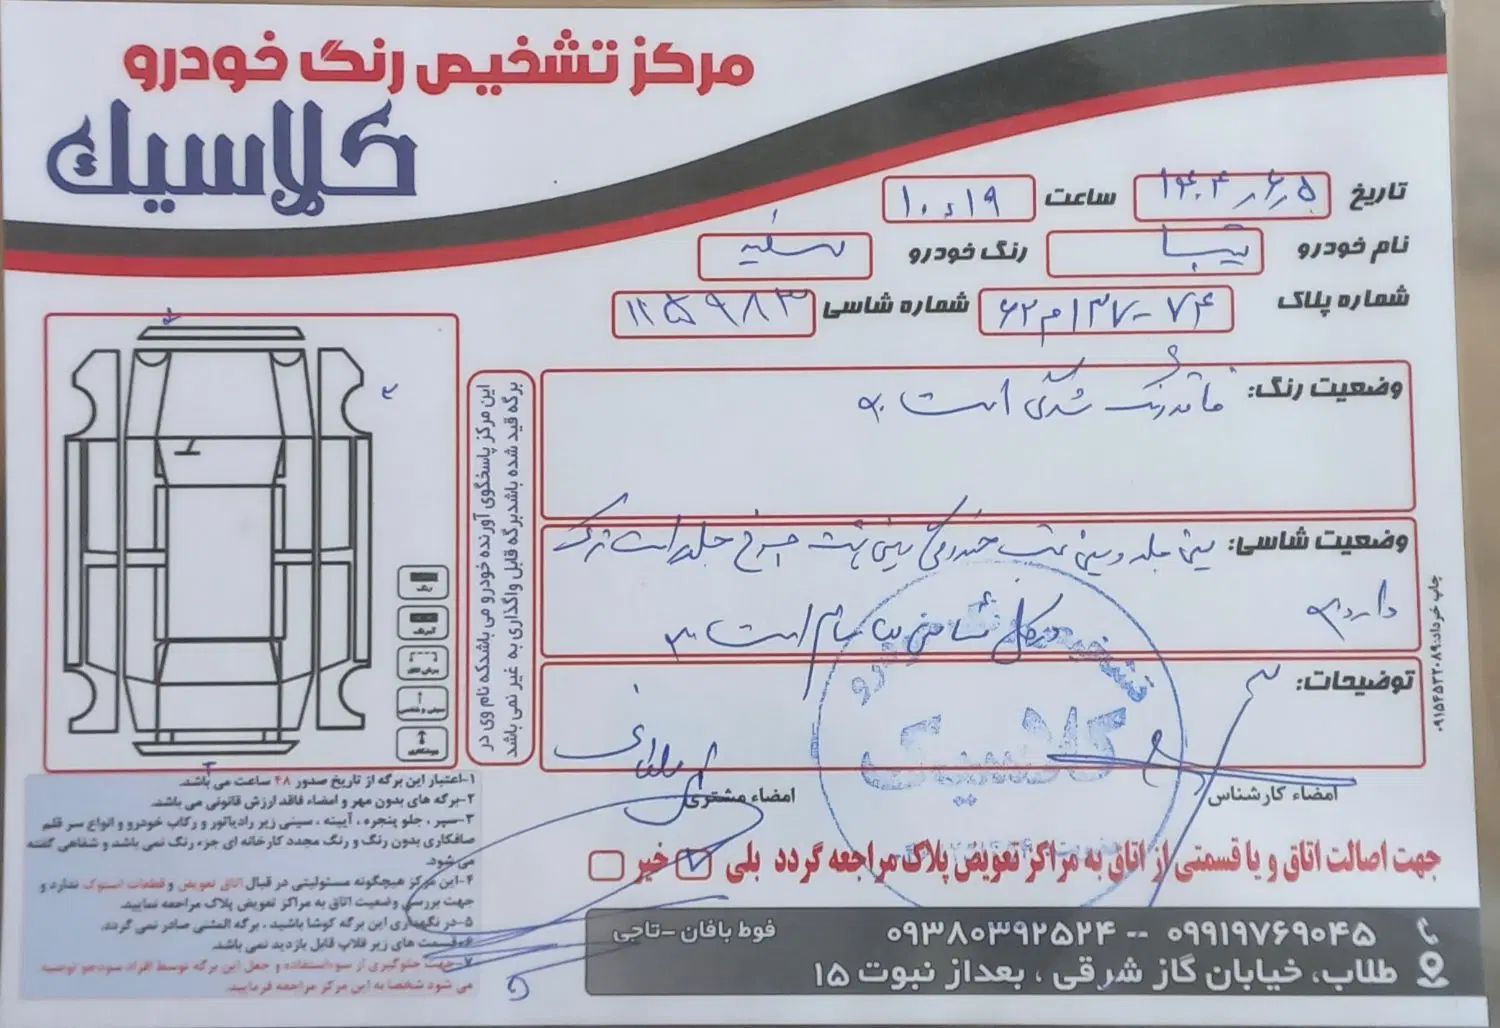 مرکز تشخیص رنگ خودرو
کلاسیک
تاریخ ۱۴۰۴٫۶٫۵ ساعت ۱۰٫۱۹
نام خودرو تیبا رنگ خودرو سفید
شماره پلاک ۷۴-۱۳۷م۶۲ شماره شاسی ۱۱۵۹۸۳
وضعیت رنگ: فاقد رنگ شدگی است
وضعیت شاسی: سینی جلو و سینی عقب خوردگی سینی پشت چراغ جلو راست ترک
دارد
در کل شاسی ها سالم است
توضیحات:
امضاء کارشناس
امضاء مشتری
این مرکز پاسخگوی آورنده خودرو می باشد که نام وی در
برگه قید شده باشد برگه قابل واگذاری به غیر نمی باشد
رنگ
۱-اعتبار این برگه از تاریخ صدور ۴۸ ساعت می باشد.
۲-برگه های بدون مهر و امضاء فاقد ارزش قانونی می باشد.
۳-سپر ، جلو پنجره ، آیینه ، سینی زیر رادیاتور و رکاب خودرو و انواع سر قلم
صافکاری بدون رنگ و رنگ مجدد کارخانه ای جزء رنگ نمی باشد و شفاهی گفته
می شود.
۴-این مرکز هیچگونه مسئولیتی در قبال اتاق تعویض و قطعات استوک ندارد و
جهت بررسی وضعیت اتاق به مراکز تعویض پلاک مراجعه نمایید.
۵-در نگهداری این برگه کوشا باشید ، برگه المثنی صادر نمی گردد.
۶-قسمت های زیر قلاب قابل بازدید نمی باشد.
۷-جهت جلوگیری از سوءاستفاده و جعل این برگه توسط افراد سودجو توصیه
می شود شخصا به این مرکز مراجعه فرمایید.
جهت اصالت اتاق و یا قسمتی از اتاق به مراکز تعویض پلاک مراجعه گردد بلی خیر
۰۹۹۱۹۷۶۹۰۴۵ -- ۰۹۳۸۰۳۹۲۵۲۴ فوط بافان -تاجی
طلاب، خیابان گاز شرقی ، بعداز نبوت ۱۵
چاپ خرداد:۰۹۱۵۴۵۳۲۰۸۹
کلاسیک